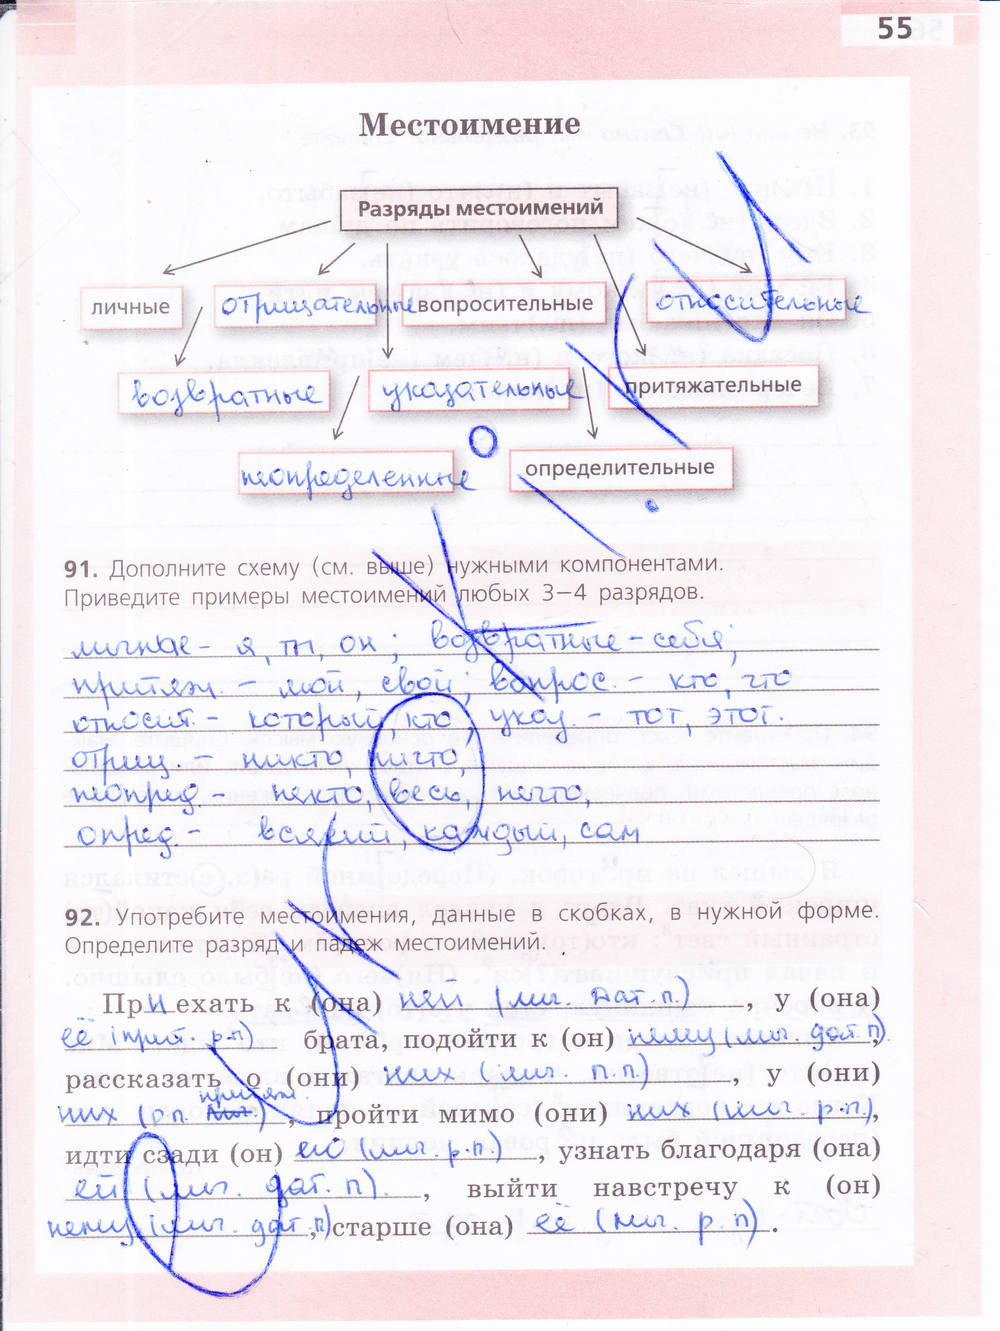 55
Местоимение
Разряды местоимений
личные отрицательные вопросительные относительные
возвратные указательные притяжательные
неопределенные определительные
91. Дополните схему (см. выше) нужными компонентами.
Приведите примеры местоимений любых 3—4 разрядов.
личные - я, ты, он; возвратные - себя;
притяж. - мой, свой; вопрос. - кто, что
относит. - который, кто, указ. - тот, этот.
отриц. - никто, ничто,
неопред - некто, весь, нечто,
опред. - всякий, каждый, сам
92. Употребите местоимения, данные в скобках, в нужной форме.
Определите разряд и падеж местоимений.
Приехать к (она) ней (лич. Дат. п.), у (она)
её (прит. р.п) брата, подойти к (он) нему (лич. дат. п),
рассказать о (они) них (лич. п.п), у (они)
притяж.
них (р.п. лич.), пройти мимо (они) них (лич. р.п),
идти сзади (он) его (лич. р.п), узнать благодаря (она)
ей (лич. дат. п)., выйти навстречу к (он)
нему (лич. дат. п), старше (она) её (лич. р.п).